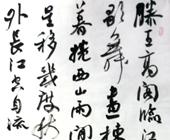 滕王高閣臨江
歌舞畫棟
暮捲西山雨閒
星移幾度秋
外長江空自流